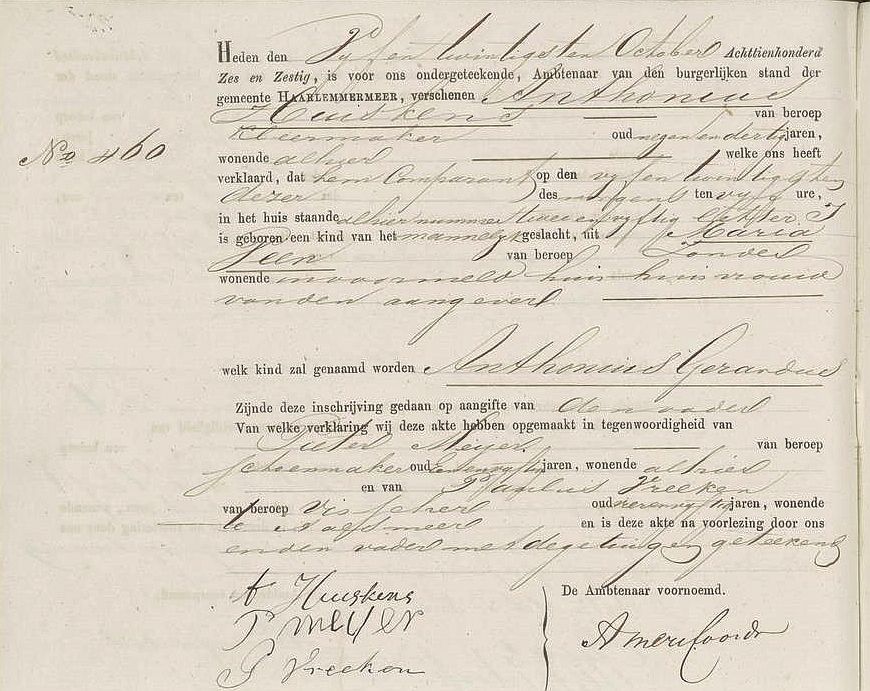 Heden den Vyf en twintigsten October Achttienhonderd
Zes en Zestig, is voor ons ondergeteekende, Ambtenaar van den burgerlijken stand der
gemeente HAARLEMMERMEER, verschenen Anthonius
Huiskens van beroep
Kleermaker oud negenendertig jaren,
No 460
wonende alhier welke ons heeft
verklaard, dat hem Comparant op den vyf en twintigsten
dezer des morgens ten vyf ure,
in het huis staande alhier nummer twee en vyftig letter I
is geboren een kind van het mannelyk geslacht, uit Maria
Peen van beroep zonder
wonende in voormeld huis huisvrouw
van den aangever
welk kind zal genaamd worden Anthonius Gerardus
Zijnde deze inschrijving gedaan op aangifte van den vader
Van welke verklaring wij deze akte hebben opgemaakt in tegenwoordigheid van
Pieter Meyer van beroep
schoenmaker oud jaren, wonende alhier
en van Paulus Vreeken
van beroep visscher oud jaren, wonende
te Aalsmeer en is deze akte na voorlezing door ons
en den vader met de getuigen geteekend
A Huiskens
P meyer
P Vreeken
De Ambtenaar voornoemd.
Amersfoordt